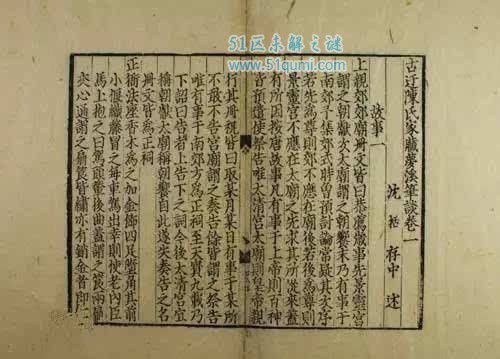 51区未解之谜
www.51qumi.com
古迂陳氏家藏夢溪筆談卷一
沈括存中述
故事一
上親郊郊廟冊文皆曰恭薦歲事先景靈宮
謂之朝獻次太廟謂之朝饗末乃有事于
南郊予集郊式時曽預討論常疑其次序
若先為尊則郊不應在廟後若後為尊則
景靈宮不應在太廟之先求其所從來蓋
有所因按唐故事凡有事于上帝則百神
皆預遣使祭告唯太清宮太廟則皇帝親
行其冊祝皆曰取某月某日有事于某所
不敢不告宮廟謂之奏告餘皆謂之祭告
唯有事于南郊方為正祠至天寶九載乃
下詔曰告者上告下之詞今後太清宮宜
稱朝獻太廟稱朝饗自此遂失奏告之名
冊文皆為正祠
正衙法座香木為之加金飾四足墮角其前
小偃織藤冒之每車駕出幸則使老內臣
馬上抱之曰駕頭輦後曲蓋謂之筤兩扇
夾心通謂之扇筤皆繡亦有銷金者即